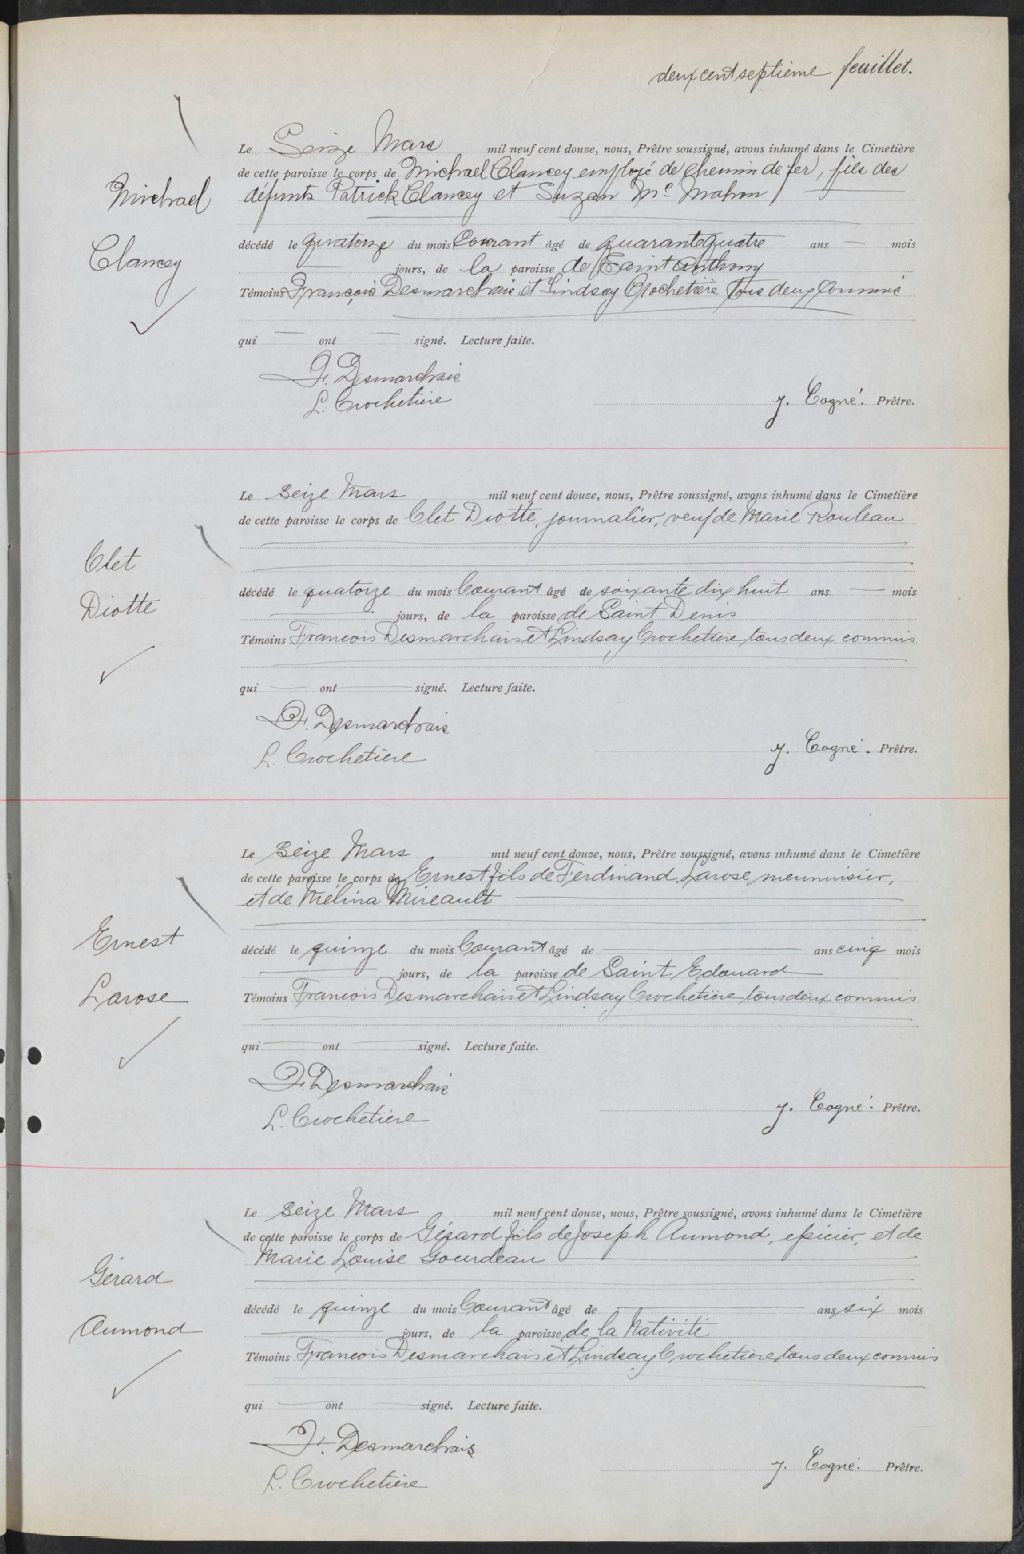 deux cent septième feuillet.
Le Seize Mars mil neuf cent douze, nous, Prêtre soussigné, avons inhumé dans le Cimetière
de cette paroisse le corps de Michael Clancey employé de chemin de fer, fils des
Michael
défunts Patrick Clancey et Suzan Mc Mahon
Clancey
décédé le quatorze du mois Courant âgé de quarante quatre ans — mois
jours, de la paroisse de Saint Anthony
Témoins François Desmarchais et Lindsay Crochetière tous deux commis
qui — ont — signé. Lecture faite.
F. Desmarchais
L. Crochetière
J. Cogné. Prêtre.
Le Seize Mars mil neuf cent douze, nous, Prêtre soussigné, avons inhumé dans le Cimetière
de cette paroisse le corps de Clet Diotte, journalier, veuf de Marie Rouleau
Clet
Diotte
décédé le quatorze du mois Courant âgé de soixante dix huit ans — mois
jours, de la paroisse de Saint Denis
Témoins Francois Desmarchais et Lindsay Crochetiere tous deux commis
qui — ont — signé. Lecture faite.
F. Desmarchais
L. Crochetiere
J. Cogné. Prêtre.
Le Seize Mars mil neuf cent douze, nous, Prêtre soussigné, avons inhumé dans le Cimetière
de cette paroisse le corps de Ernest fils de Ferdinand Larose, meunuisier,
et de Mélina Mireault
Ernest
Larose
décédé le quinze du mois Courant âgé de — ans cinq mois
jours, de la paroisse de Saint Edouard
Témoins Francois Desmarchais et Lindsay Crochetiere tous deux commis
qui — ont — signé. Lecture faite.
F. Desmarchais
L. Crochetiere
J. Cogné. Prêtre.
Le Seize Mars mil neuf cent douze, nous, Prêtre soussigné, avons inhumé dans le Cimetière
de cette paroisse le corps de Gérard fils de Joseph Aumond, epicier, et de
Marie Louise Gourdeau
Gérard
Aumond
décédé le quinze du mois Courant âgé de — ans six mois
jours, de la paroisse de la Nativité
Témoins Francois Desmarchais et Lindsay Crochetiere tous deux commis
qui — ont — signé. Lecture faite.
F. Desmarchais
L. Crochetière
J. Cogné. Prêtre.